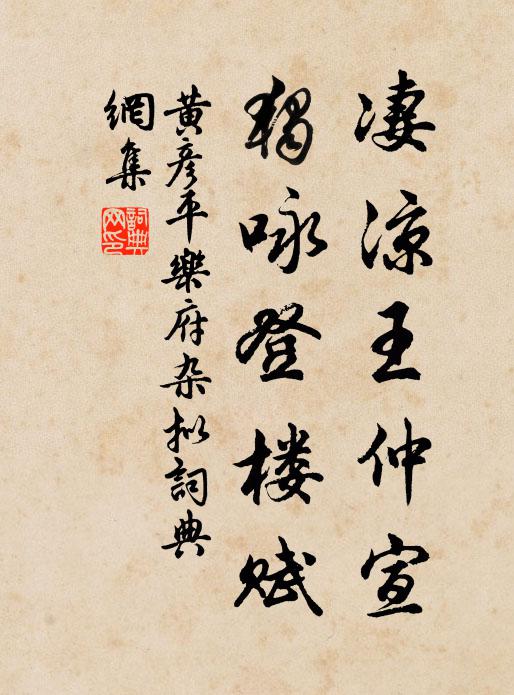 凄凉王仲宣
獨咏登楼赋
黄彦平樂府杂拟詞典
網集
詞典网印